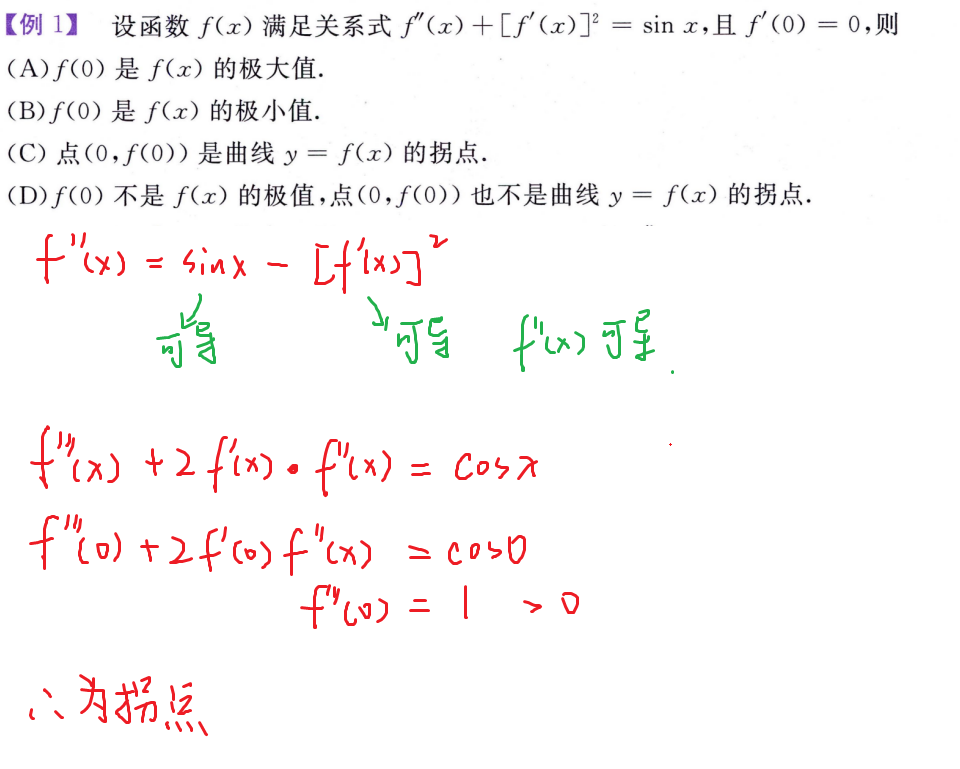 【例 1】 设函数 f(x) 满足关系式 f″(x)+[f′(x)]² = sin x,且 f′(0) = 0,则
(A) f(0) 是 f(x) 的极大值.
(B) f(0) 是 f(x) 的极小值.
(C) 点(0,f(0)) 是曲线 y = f(x) 的拐点.
(D) f(0) 不是 f(x) 的极值,点(0,f(0)) 也不是曲线 y = f(x) 的拐点.
f″(x) = sinx − [f′(x)]²
可导 可导 f″(x) 可导
f‴(x) + 2f′(x)·f″(x) = cosx
f‴(0) + 2f′(0)f″(x) = cos0
f‴(0) = 1 > 0
∴为拐点